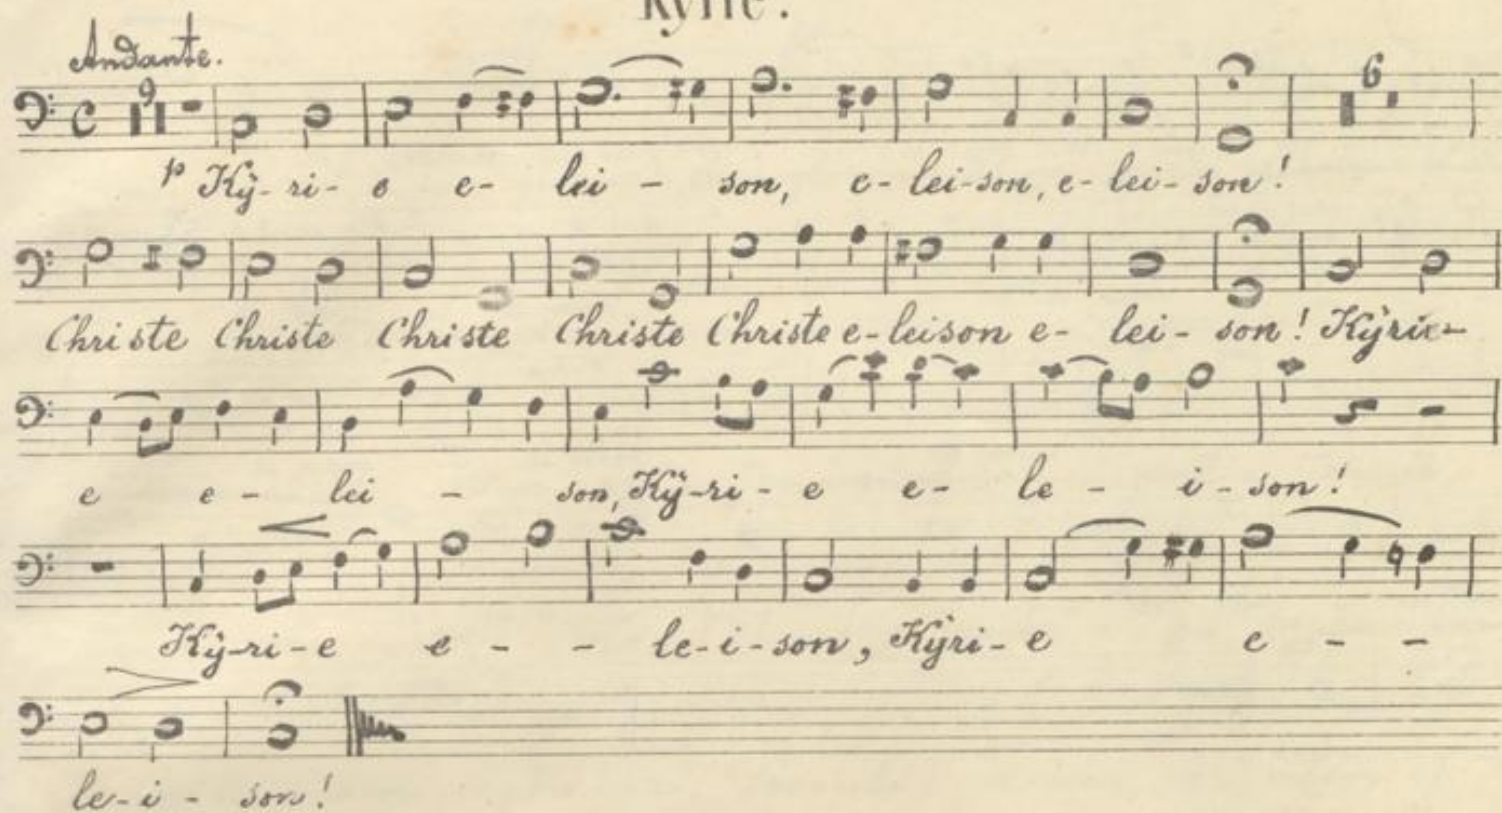 Kyrie.
Andante.
9 6
p Kÿ-ri-e e- lei - son, e-lei-son, e-lei-son!
Christe Christe Christe Christe Christe e-leison e- lei-son! Kÿrie-
e e- lei - son, Kÿ-ri-e e- le - i-son!
Kÿ-ri-e e - - le-i-son, Kÿri-e e - -
le-i - son!